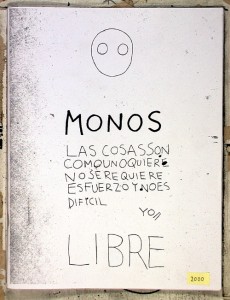 MONOS
LAS COSASSON
COMOUNOQUIERE
NOSEREQUIERE
ESFUERZOYNOES
DIFICIL
YO//
LIBRE
2000